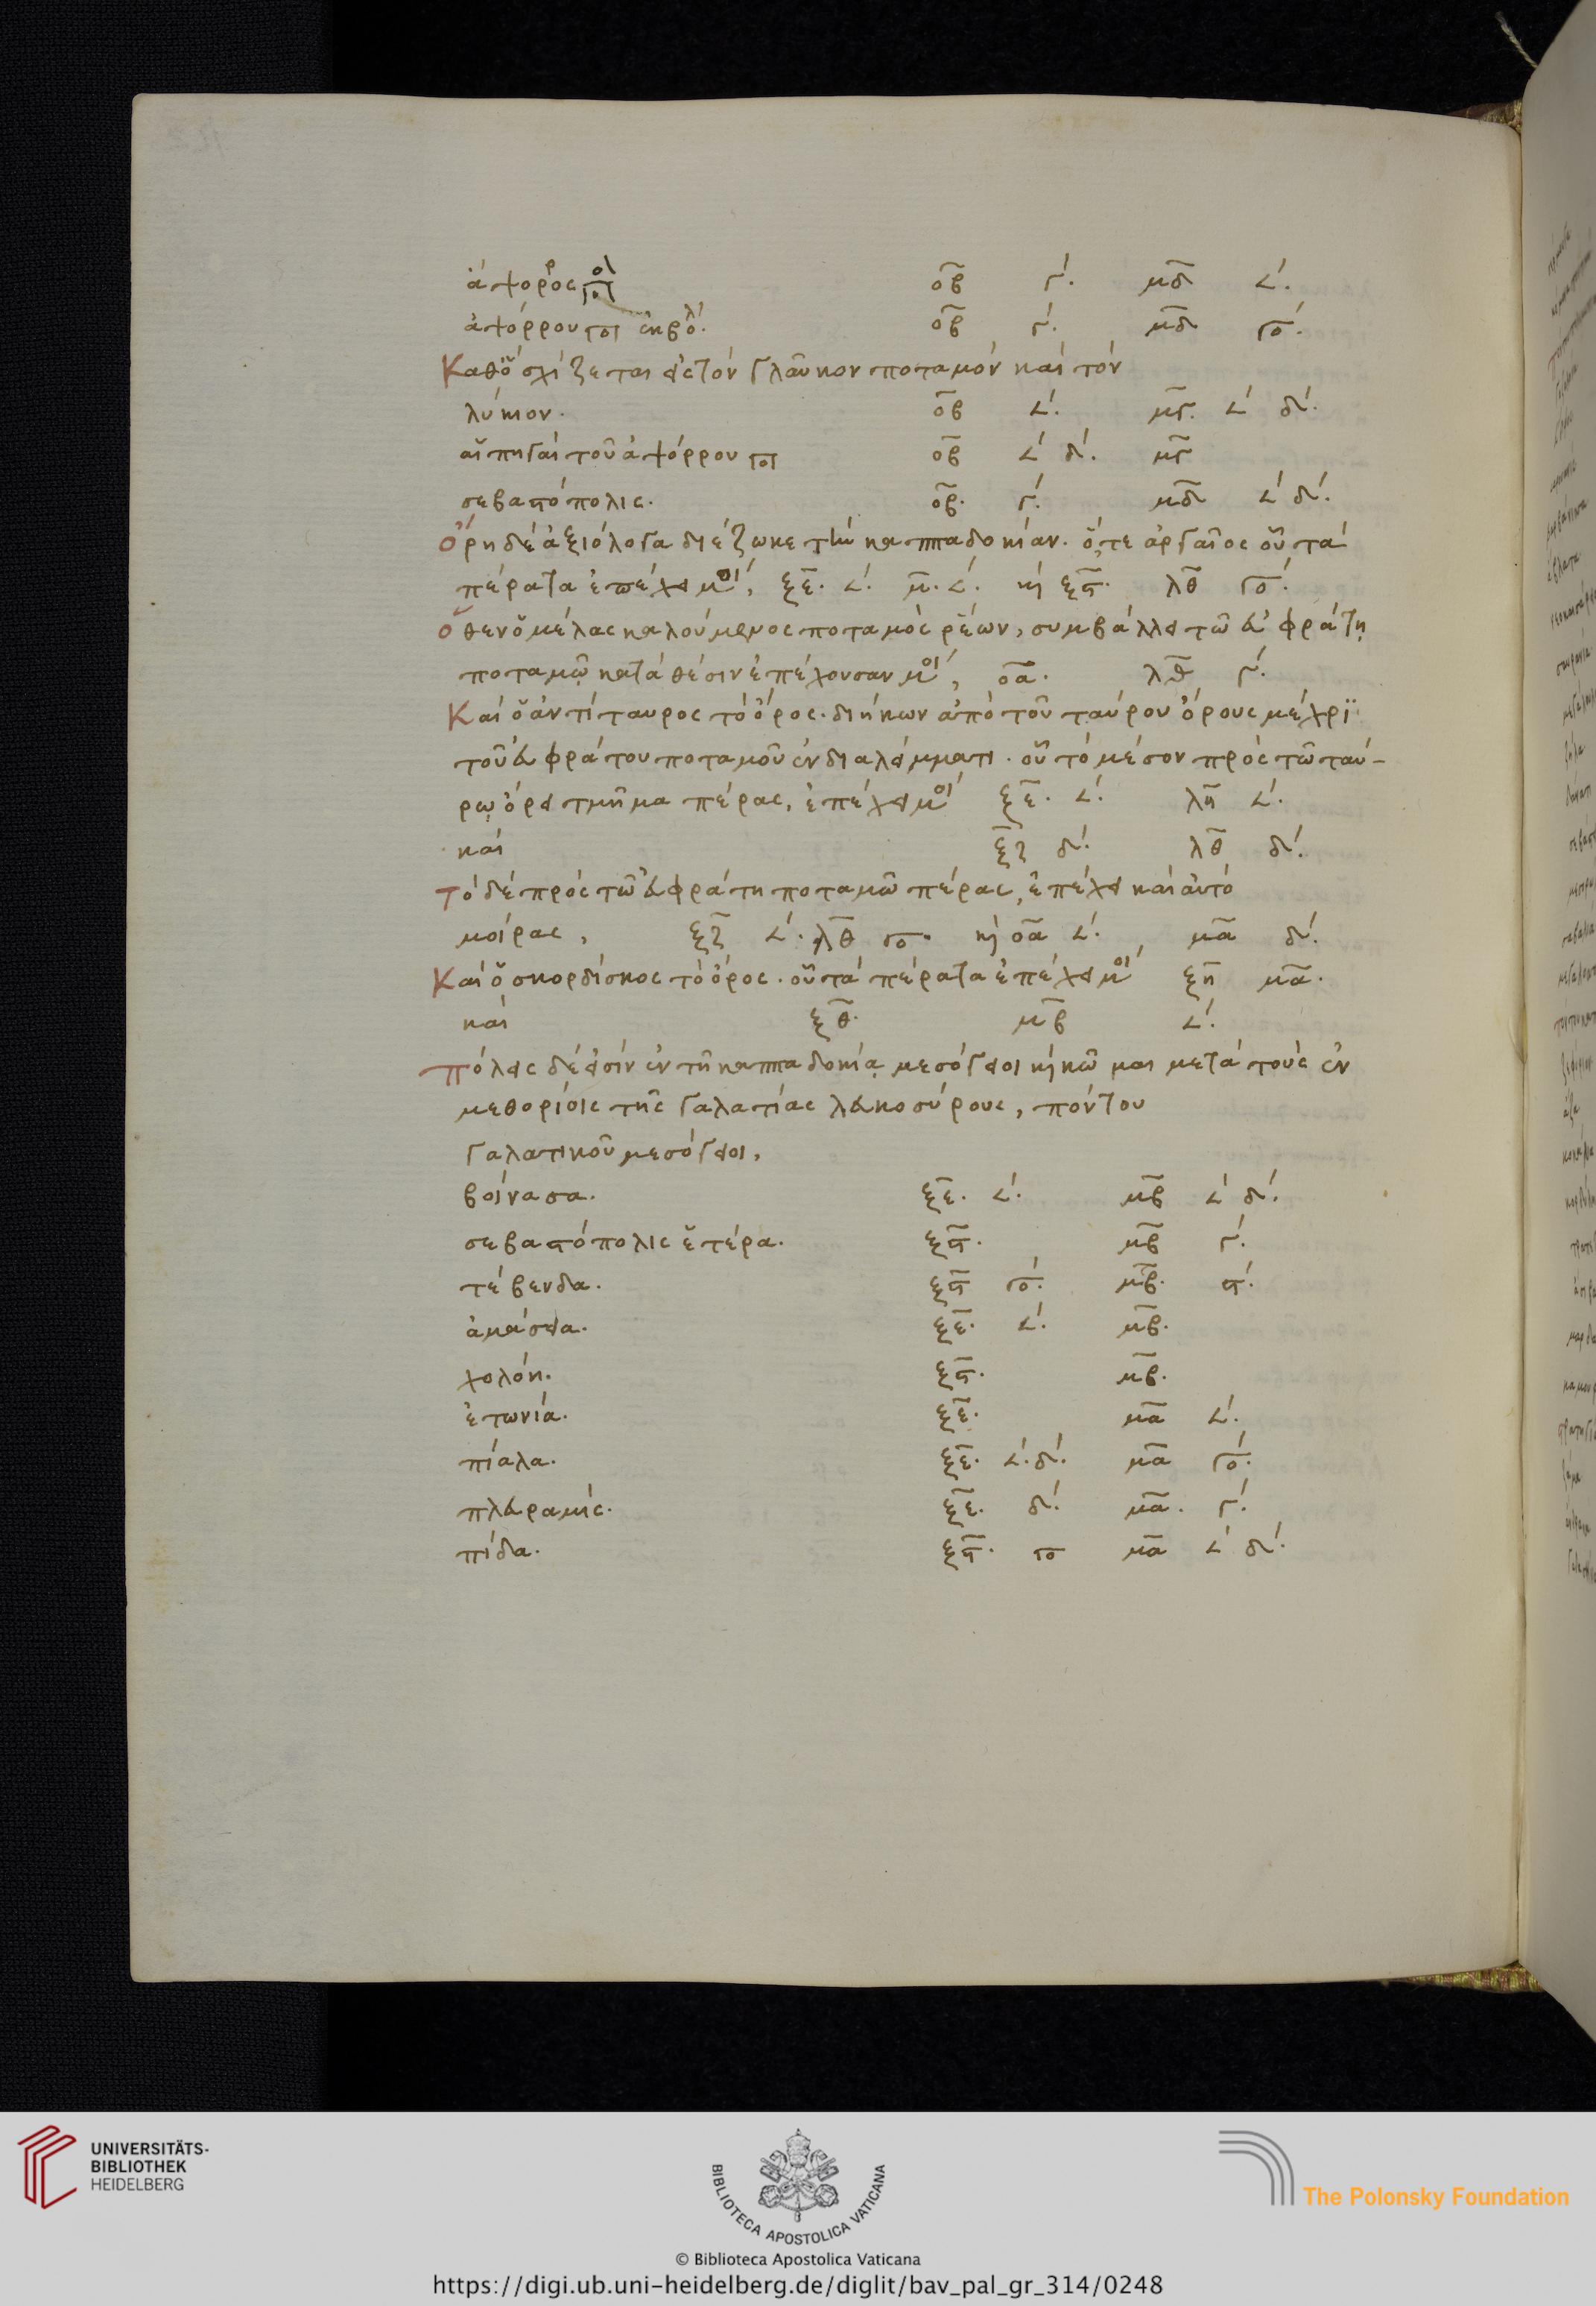 ἄψορρος πο
ἀψόρρου ποτ ἐκβολ οβ γ´. μδ γο´.
Καθὃ σχίζεται εἰς τὸν Γλαῦκον ποταμὸν καὶ τὸν
λύκιον. οβ 𐅵´. μγ. 𐅵´ δ´.
αἱ πηγαὶ τοῦ ἀψόρρου ποτ οβ 𐅵´ δ´. μγ
σεβαστόπολις. οβ. γ´. μδ 𐅵´ δ´.
Ὄρη δὲ ἀξιόλογα διέζωκε τὴν καππαδοκίαν. ὅ, τε ἀργαῖος οὗ τὰ
πέρατα ἐπέχει μοι´, ξε. 𐅵´. μ. 𐅵´. κὴ ξϛ. λθ γο´.
Ὅθεν ὁ μέλας καλούμενος ποταμὸς ῥέων, συμβάλλει τῶ εὐφράτῃ
ποταμῷ κατὰ θέσιν ἐπέχουσαν μοι´, οα. λθ γ´.
Καὶ ὁ ἀντίταυρος τὸ ὄρος. διήκων ἀπὸ τοῦ ταύρου ὄρους μέχρϊ
τοῦ εὐφράτου ποταμοῦ ἐν διαλείμματι. οὗ τὸ μέσον πρὸς τῶ ταύ-
ρῳ ὄρει τμῆμα πέρας, ἐπέχει μοι´ ξε. 𐅵´. λη 𐅵´.
καὶ ξζ δ´. λθ δ´.
Τὸ δὲ πρὸς τῶ εὐφράτη ποταμῶ πέρας, ἐπέχει καὶ αὐτὸ
μοίρας, ξζ 𐅵´. λθ γο. κὴ οα 𐅵´. μα δ´.
Καὶ ὁ σκορδίσκος τὸ ὄρος. οὗ τὰ πέρατα ἐπέχει μοι´ ξη μα.
καὶ ξθ. μβ 𐅵´.
Πόλεις δέ εἰσὶν ἐν τῆ καππαδοκίᾳ μεσόγειοι κὴ κῶμαι μετὰ τοὺς ἐν
μεθορίοις τῆς Γαλατίας λευκοσύρους, πόντου
Γαλατικοῦ μεσόγειοι,
βοίνασα. ξε. 𐅵´. μβ 𐅵´ δ´.
σεβαστόπολις ἑτέρα. ξϛ. μβ γ´.
τέβενδα. ξϛ γο´. μβ. ϛ´.
ἀμάσεια. ξε. 𐅵´. μβ.
χολόη. ξϛ. μβ.
ἐτωνία. ξε. μα 𐅵´.
πίαλα. ξε. 𐅵´. δ´. μα γο´.
πλευραμίς. ξε. δ´. μα. γ´.
πίδα. ξϛ. γο μα 𐅵´ δ´.
UNIVERSITÄTS-
BIBLIOTHEK
HEIDELBERG
BIBLIOTECA APOSTOLICA VATICANA
The Polonsky Foundation
© Biblioteca Apostolica Vaticana
https://digi.ub.uni-heidelberg.de/diglit/bav_pal_gr_314/0248